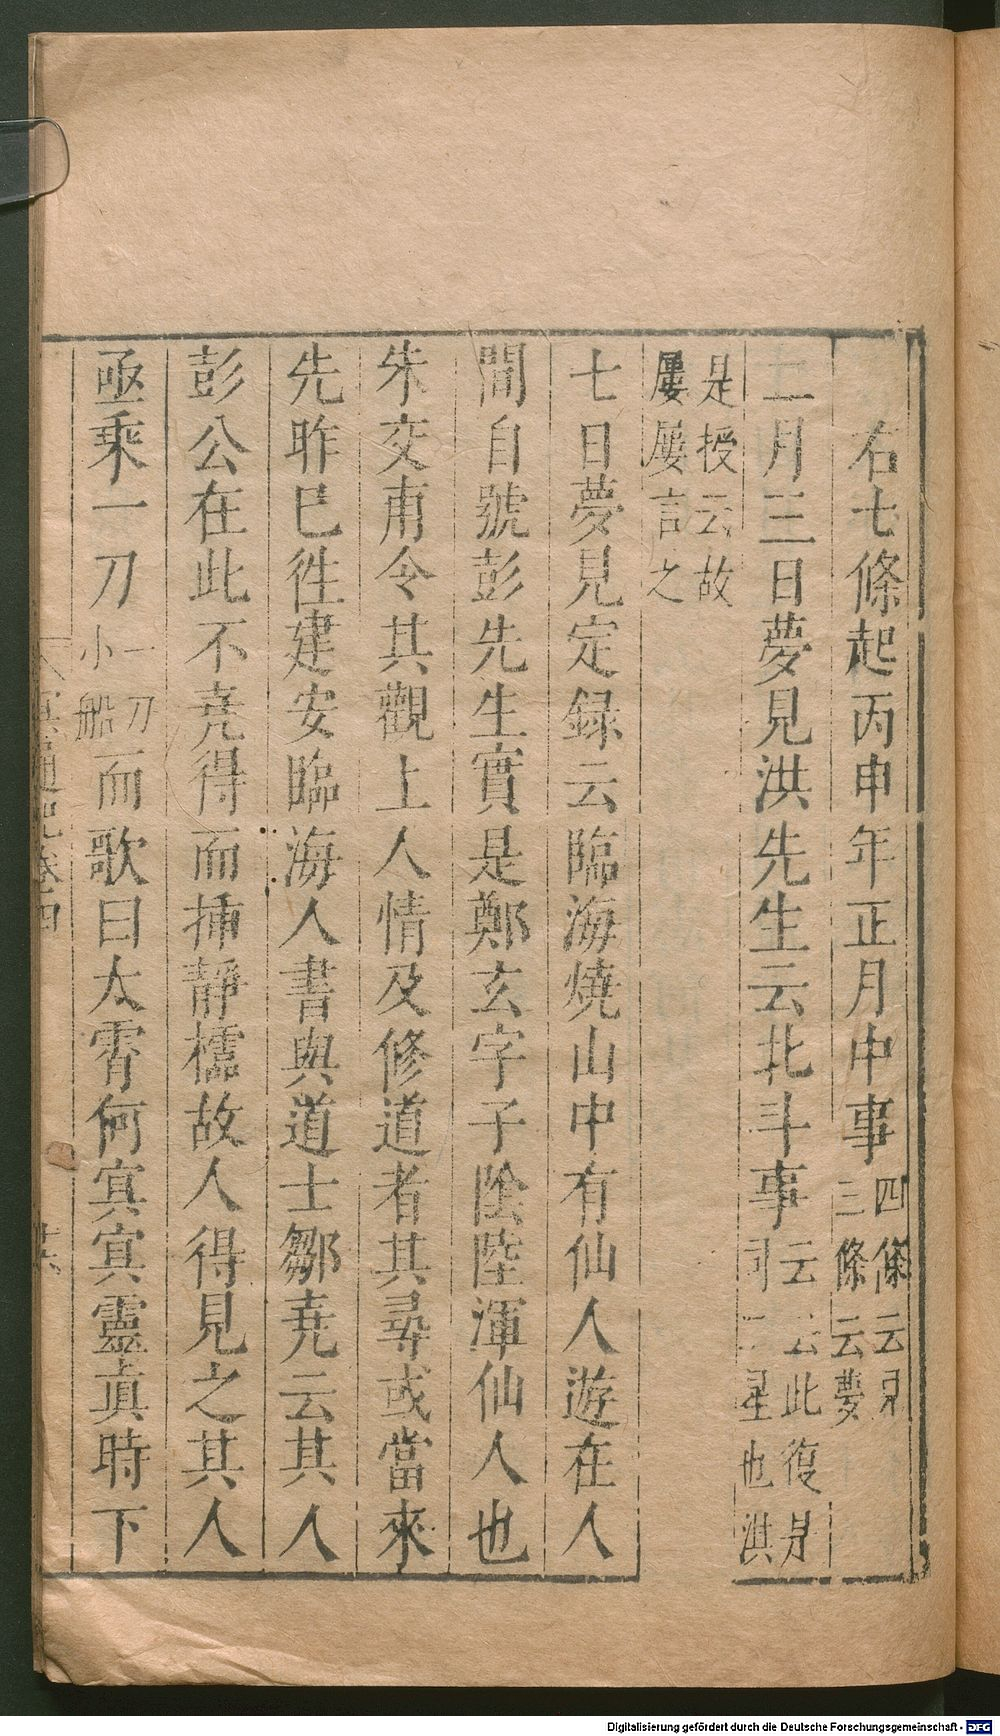 右七條起丙申年正月中事四條云
三條云夢
二月三日夢見洪先生云北斗事云云此復是
星也淇
是授云故
屢屢言之
七日夢見定録云臨海燒山中有仙人遊在人
間自號彭先生實是鄭玄字子陰陸渾仙人也
朱交甫令其觀上人情及修道者其尋或當來
先昨巳徃建安臨海人書與道士鄒堯云其人
彭公在此不堯得而揷靜櫺故人得見之其人
亟乘一刀一刀
小船而歌曰太霄何寘寘靈眞時下
通記卷四
Digitalisierung gefördert durch die Deutsche Forschungsgemeinschaft - DFG